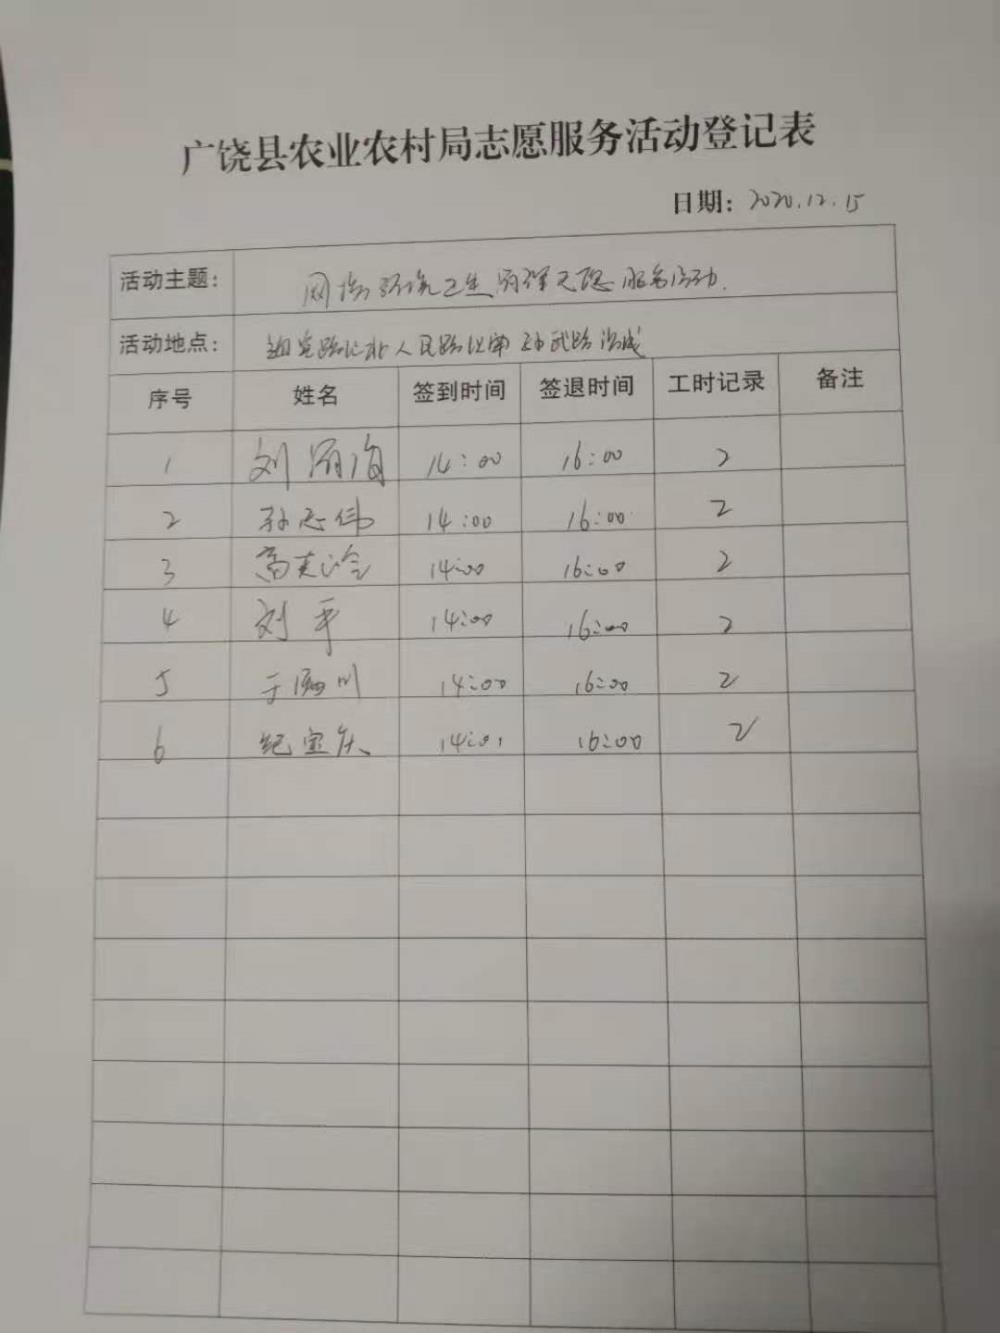 广饶县农业农村局志愿服务活动登记表
日期: 2020.12.15
活动主题: 网格环境卫生清理志愿服务活动.
活动地点: 路以北人民路以南孙武路
序号 姓名 签到时间 签退时间 工时记录 备注
1 刘海 14:00 16:00 2
2 孙志伟 14:00 16:00 2
3 高 14:00 16:00 2
4 刘平 14:00 16:00 2
5 于川 14:00 16:00 2
6 纪宝庆 14:01 16:00 2